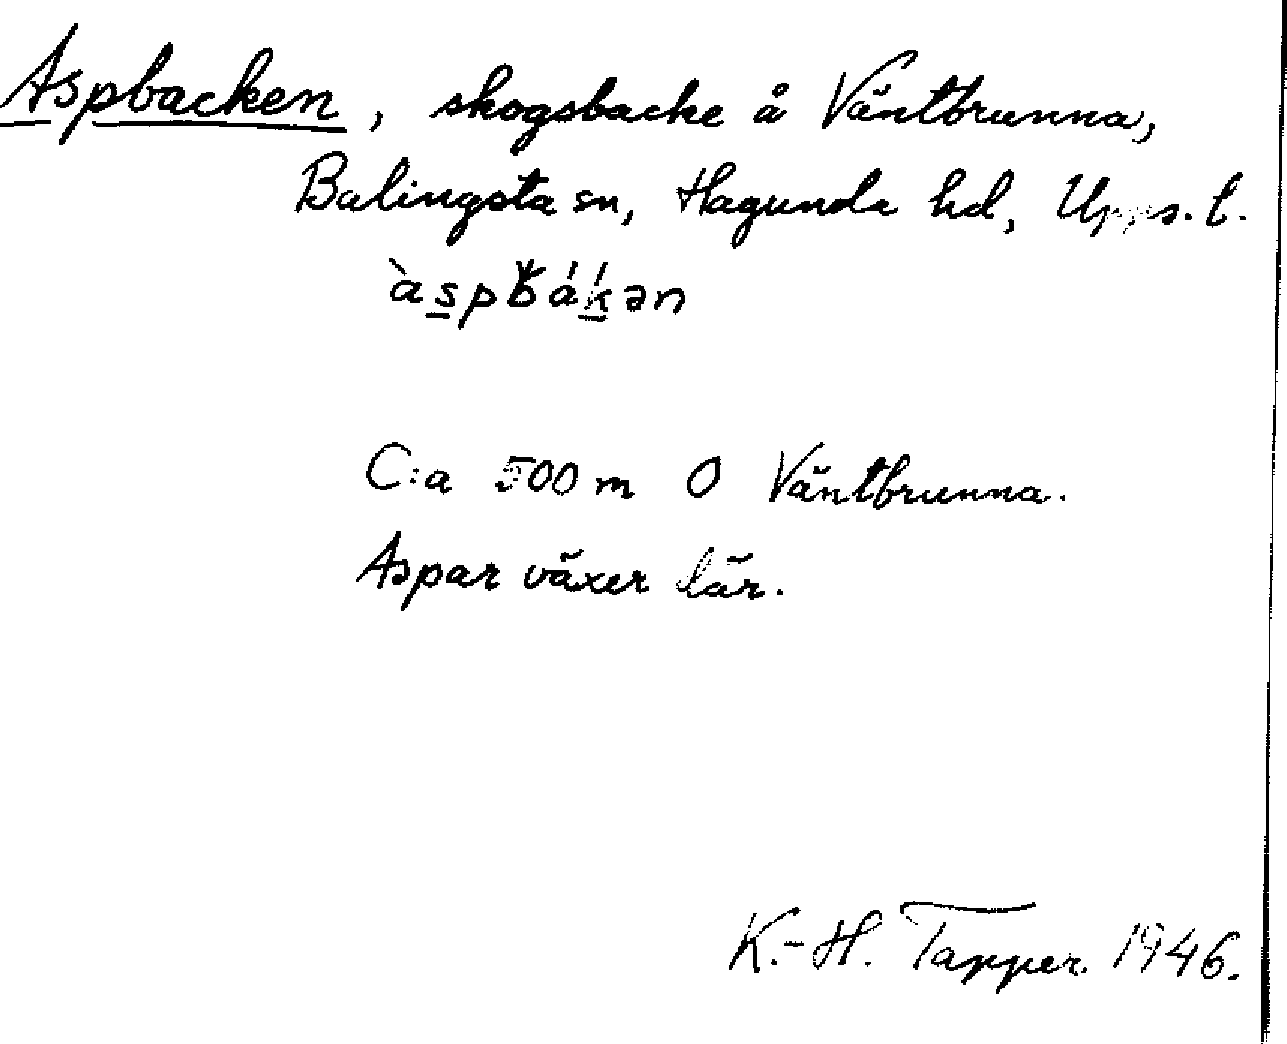 Aspbacken, skogsbacke å Väntbrunna,
Balingsta sn, Hagunda hd, Upps. l.
àspbákən
C:a 500 m O Väntbrunna.
Aspar växer där.
K.-H. Tapper 1946.